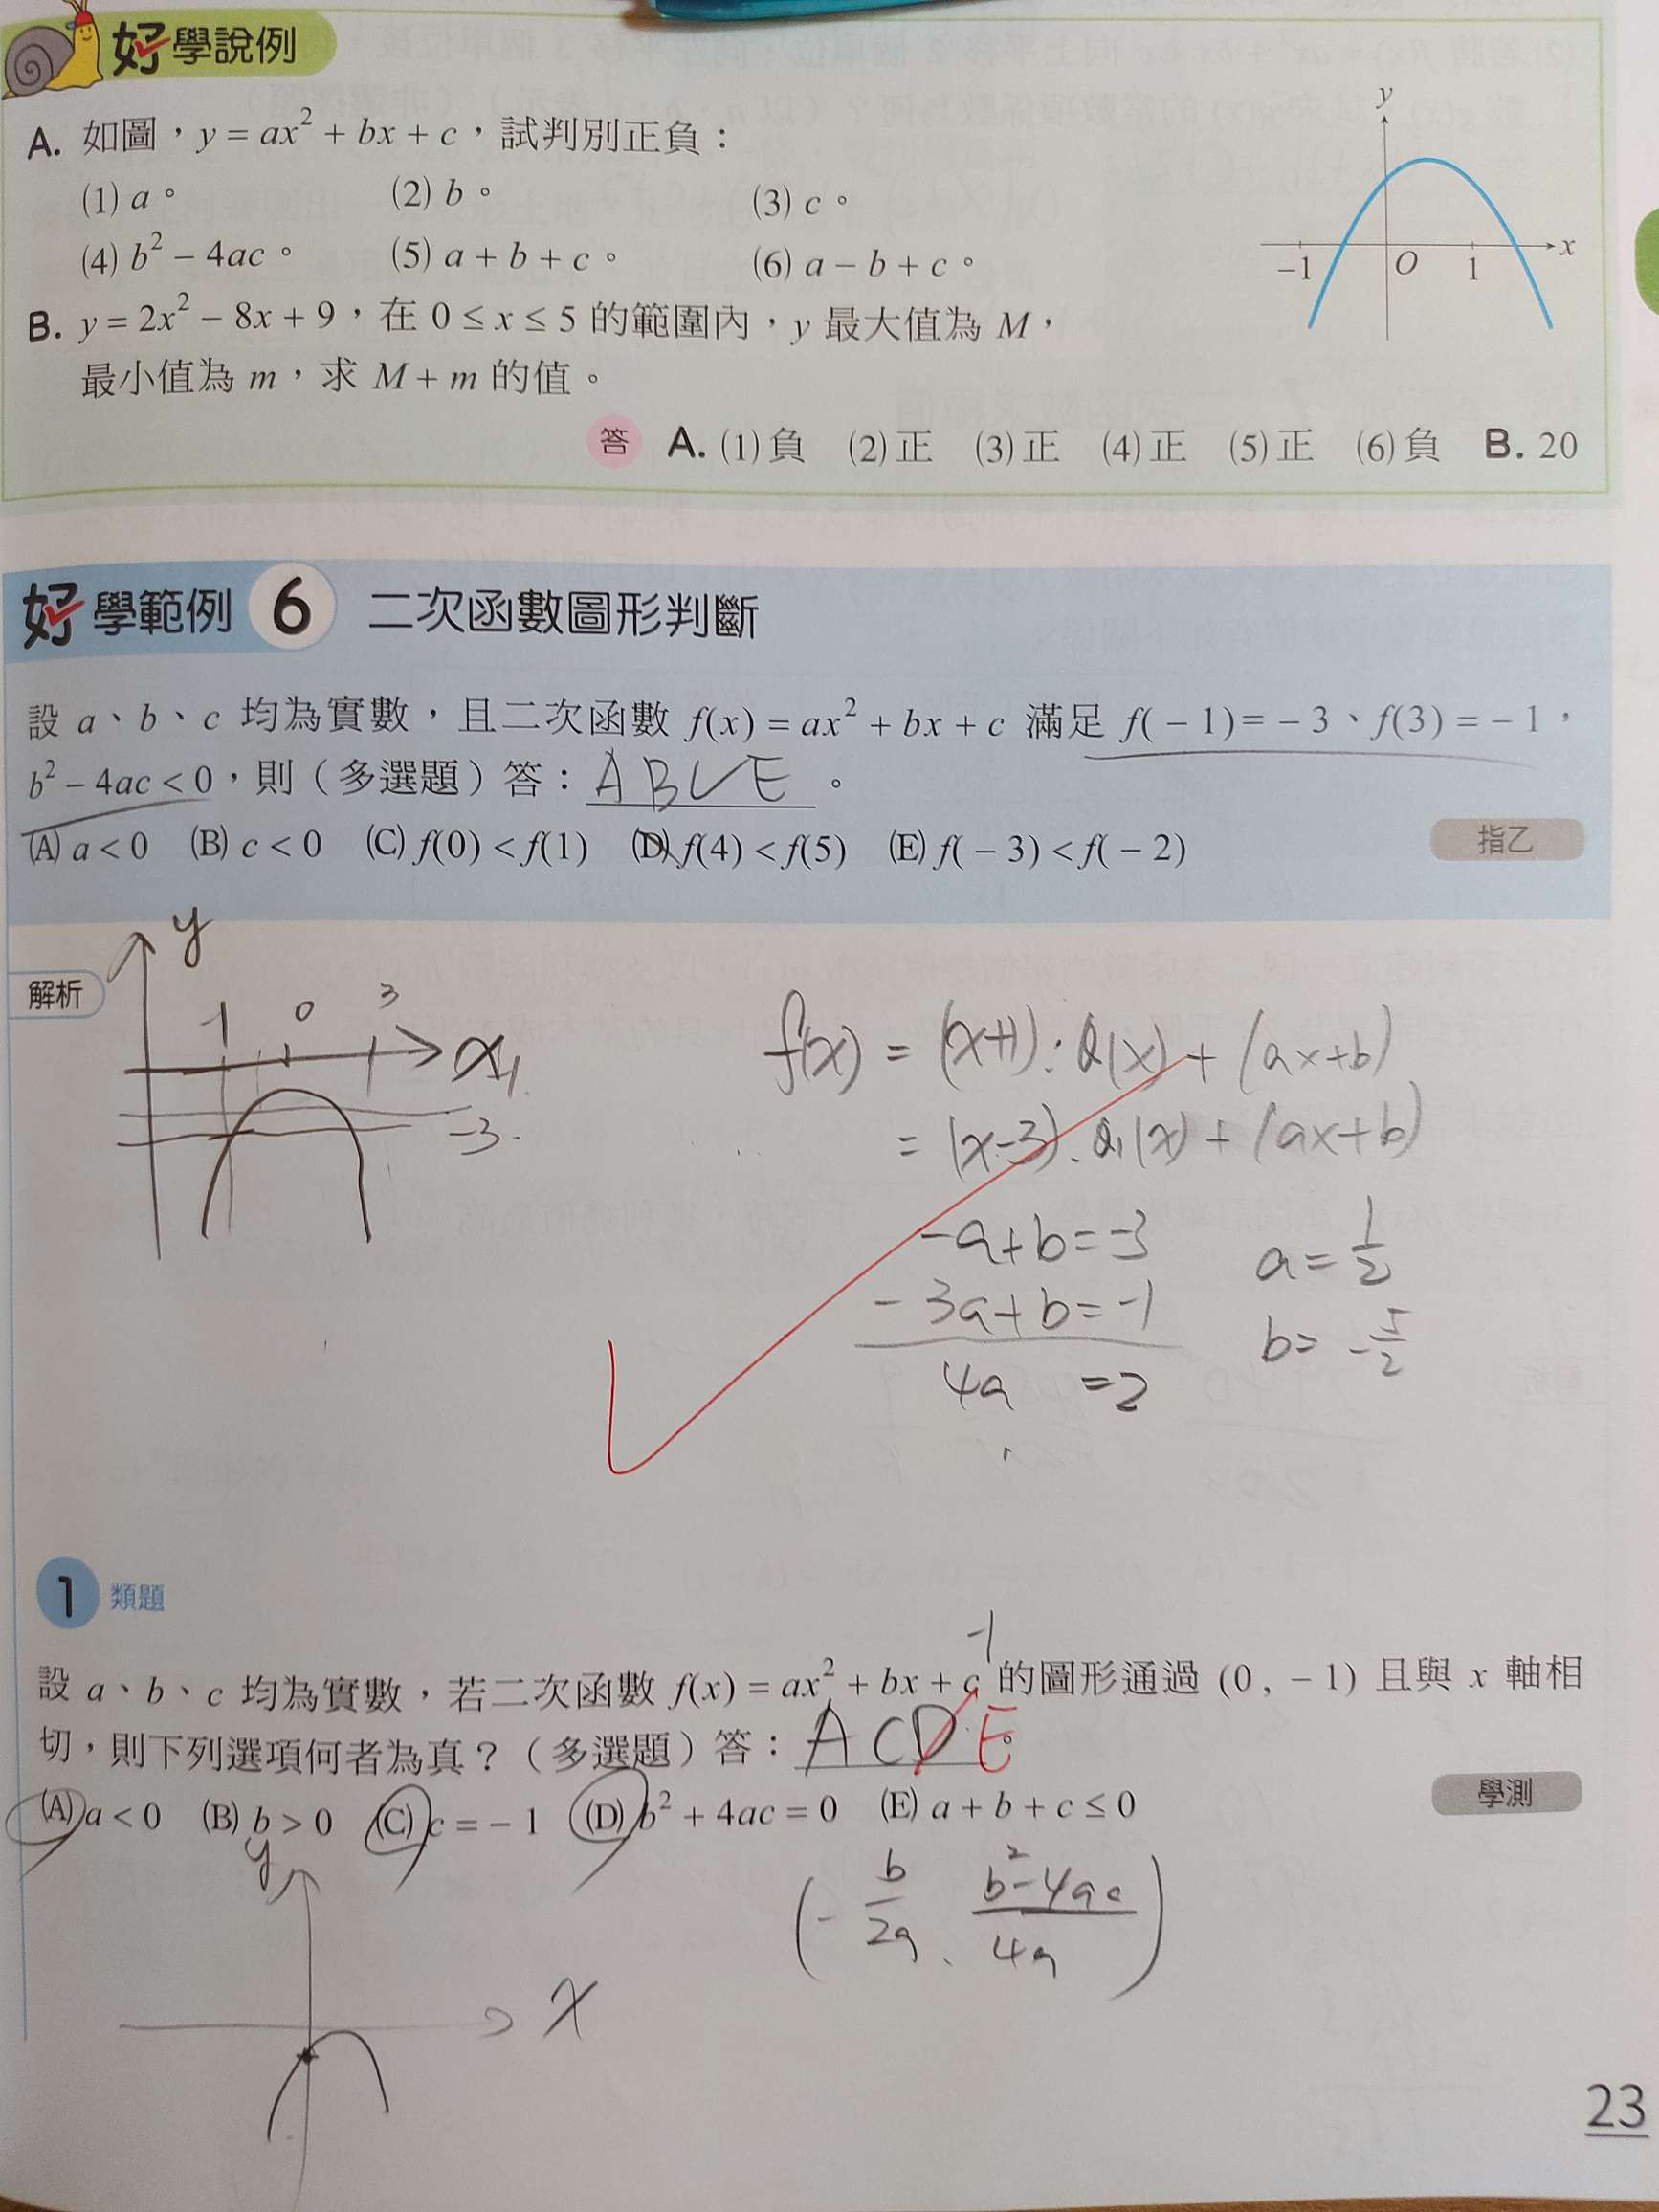 好學說例
A. 如圖，y = ax² + bx + c，試判別正負：
(1) a。 (2) b。 (3) c。
(4) b² − 4ac。 (5) a + b + c。 (6) a − b + c。
y
x
−1 O 1
B. y = 2x² − 8x + 9，在 0 ≤ x ≤ 5 的範圍內，y 最大值為 M，
最小值為 m，求 M + m 的值。
答 A. (1)負 (2)正 (3)正 (4)正 (5)正 (6)負 B. 20
好學範例 6 二次函數圖形判斷
設 a、b、c 均為實數，且二次函數 f(x) = ax² + bx + c 滿足 f(−1) = −3、f(3) = −1，
b² − 4ac < 0，則（多選題）答：ABCE。
(A) a < 0 (B) c < 0 (C) f(0) < f(1) (D) f(4) < f(5) (E) f(−3) < f(−2)
指乙
解析
y
-1 0 3
x
-1
-3
f(x) = (x+1)·Q(x) + (ax+b)
= (x-3)·Q(x) + (ax+b)
-a+b=-3
- 3a+b=-1
4a =2
a=1/2
b=-5/2
1 類題
-1
設 a、b、c 均為實數，若二次函數 f(x) = ax² + bx + c 的圖形通過 (0, −1) 且與 x 軸相
切，則下列選項何者為真？（多選題）答：ACDE。
(A) a < 0 (B) b > 0 (C) c = −1 (D) b² + 4ac = 0 (E) a + b + c ≤ 0
學測
y
x
(-b/2a、b²-4ac/4a)
23